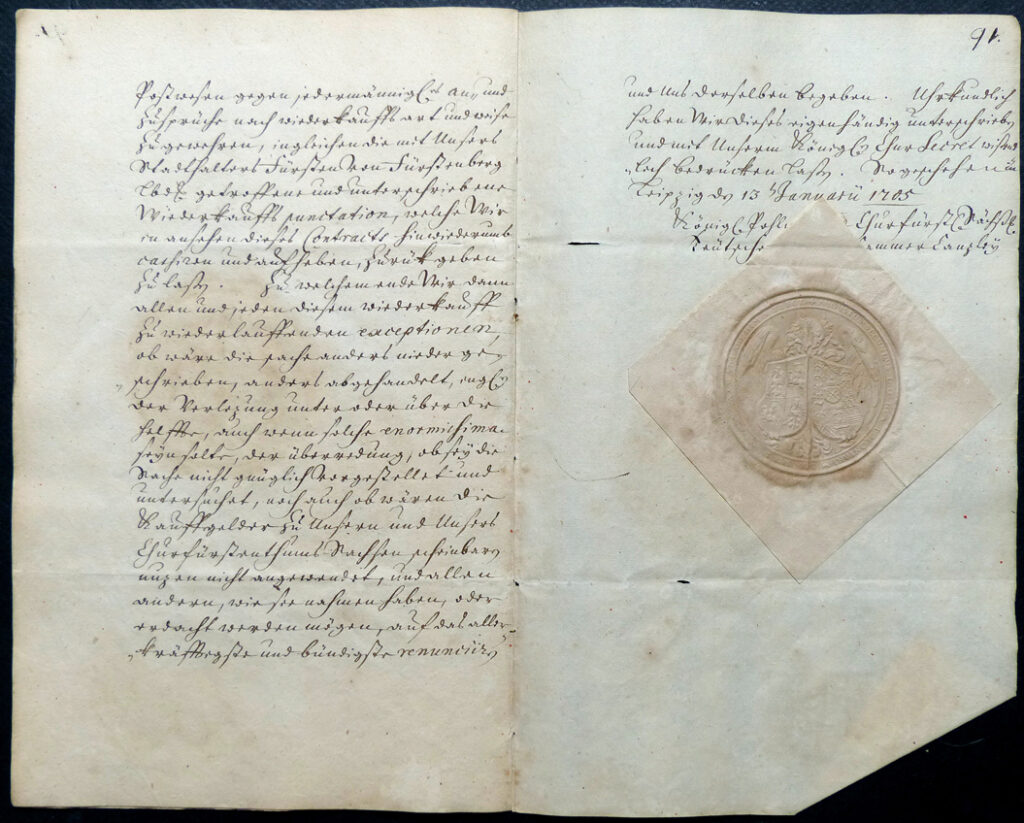 91.
Postwesen gegen jedermännigl. an- und
Zusprüche nach wiederkauffs art und weise
zu gewehren, ingleichen die mit Unsers
Stadthalters Fürsten von Fürstenberg
Lbd. getroffene und unterschriebene
Wiederkauffs punctation, welche Wir
in ansehen dieses Contracts hinwiederumb
cassiren und aufheben, zurück geben
zu laßen. Zu welchem ende Wir dann
allen und jeden diesem wiederkauff
zu wiederlauffenden exceptionen,
ob wäre die sache anders nieder ge-
schrieben, anders abgehandelt,
der Verlezung unter oder über die
helffte, auch wenn solche enormissima
seyn solte, der überredung, ob sey die
Sache nicht gnüglich vorgestellet und
untersuchet, noch auch ob wären die
Kauffgelder zu Unsern und Unsers
Churfürstenthums Sachsen scheinbaren
nuzen nicht angewendet, und allen
andern, wie sie nahmen haben, oder
erdacht werden mögen, auf das aller-
kräfftigste und bündigste renunciiren
und Uns derselben begeben. Uhrkundlich
haben Wir dieses eigenhändig unterschrieben
und mit Unserm Königl. Chur Secret wißend-
lich bedrücken laßen. So geschehen in
Leipzig den 13 Januarii 1705
Königl. Pohln. Churfürstl. Sächß.
Teutsche Cammer Canzley